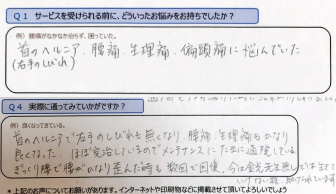 Q1 サービスを受けられる前に、どういったお悩みをお持ちでしたか?
例）腰痛がなかなか治らず、困っていた。
首のヘルニア、腰痛、生理痛、偏頭痛に悩んでいた
(右手のしびれ)
Q4 実際に通ってみていかがですか?
例）良くなってきている。
首のヘルニアで右手のしびれも無くなり、腰痛、生理痛もかなり
良くなった。ほぼ完治しているのでメンテナンスでたまに通院している
ぎっくり腰で腰がかなり歪んだ時も数回で回復、今は
*上記のお声についてお願いがあります。インターネットや印刷物などに掲載させて頂いてよろしいでしょう